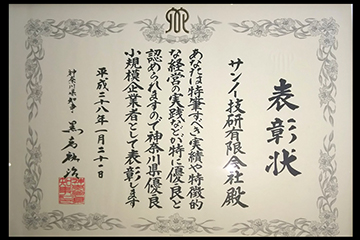 表彰状
サンイ技研有限会社殿
あなたは特筆すべき実績や特徴的
な経営の実践などが特に優良と
認められますので神奈川県優良
小規模企業者として表彰します
平成二十八年一月二十一日
神奈川県知事 黒岩祐治